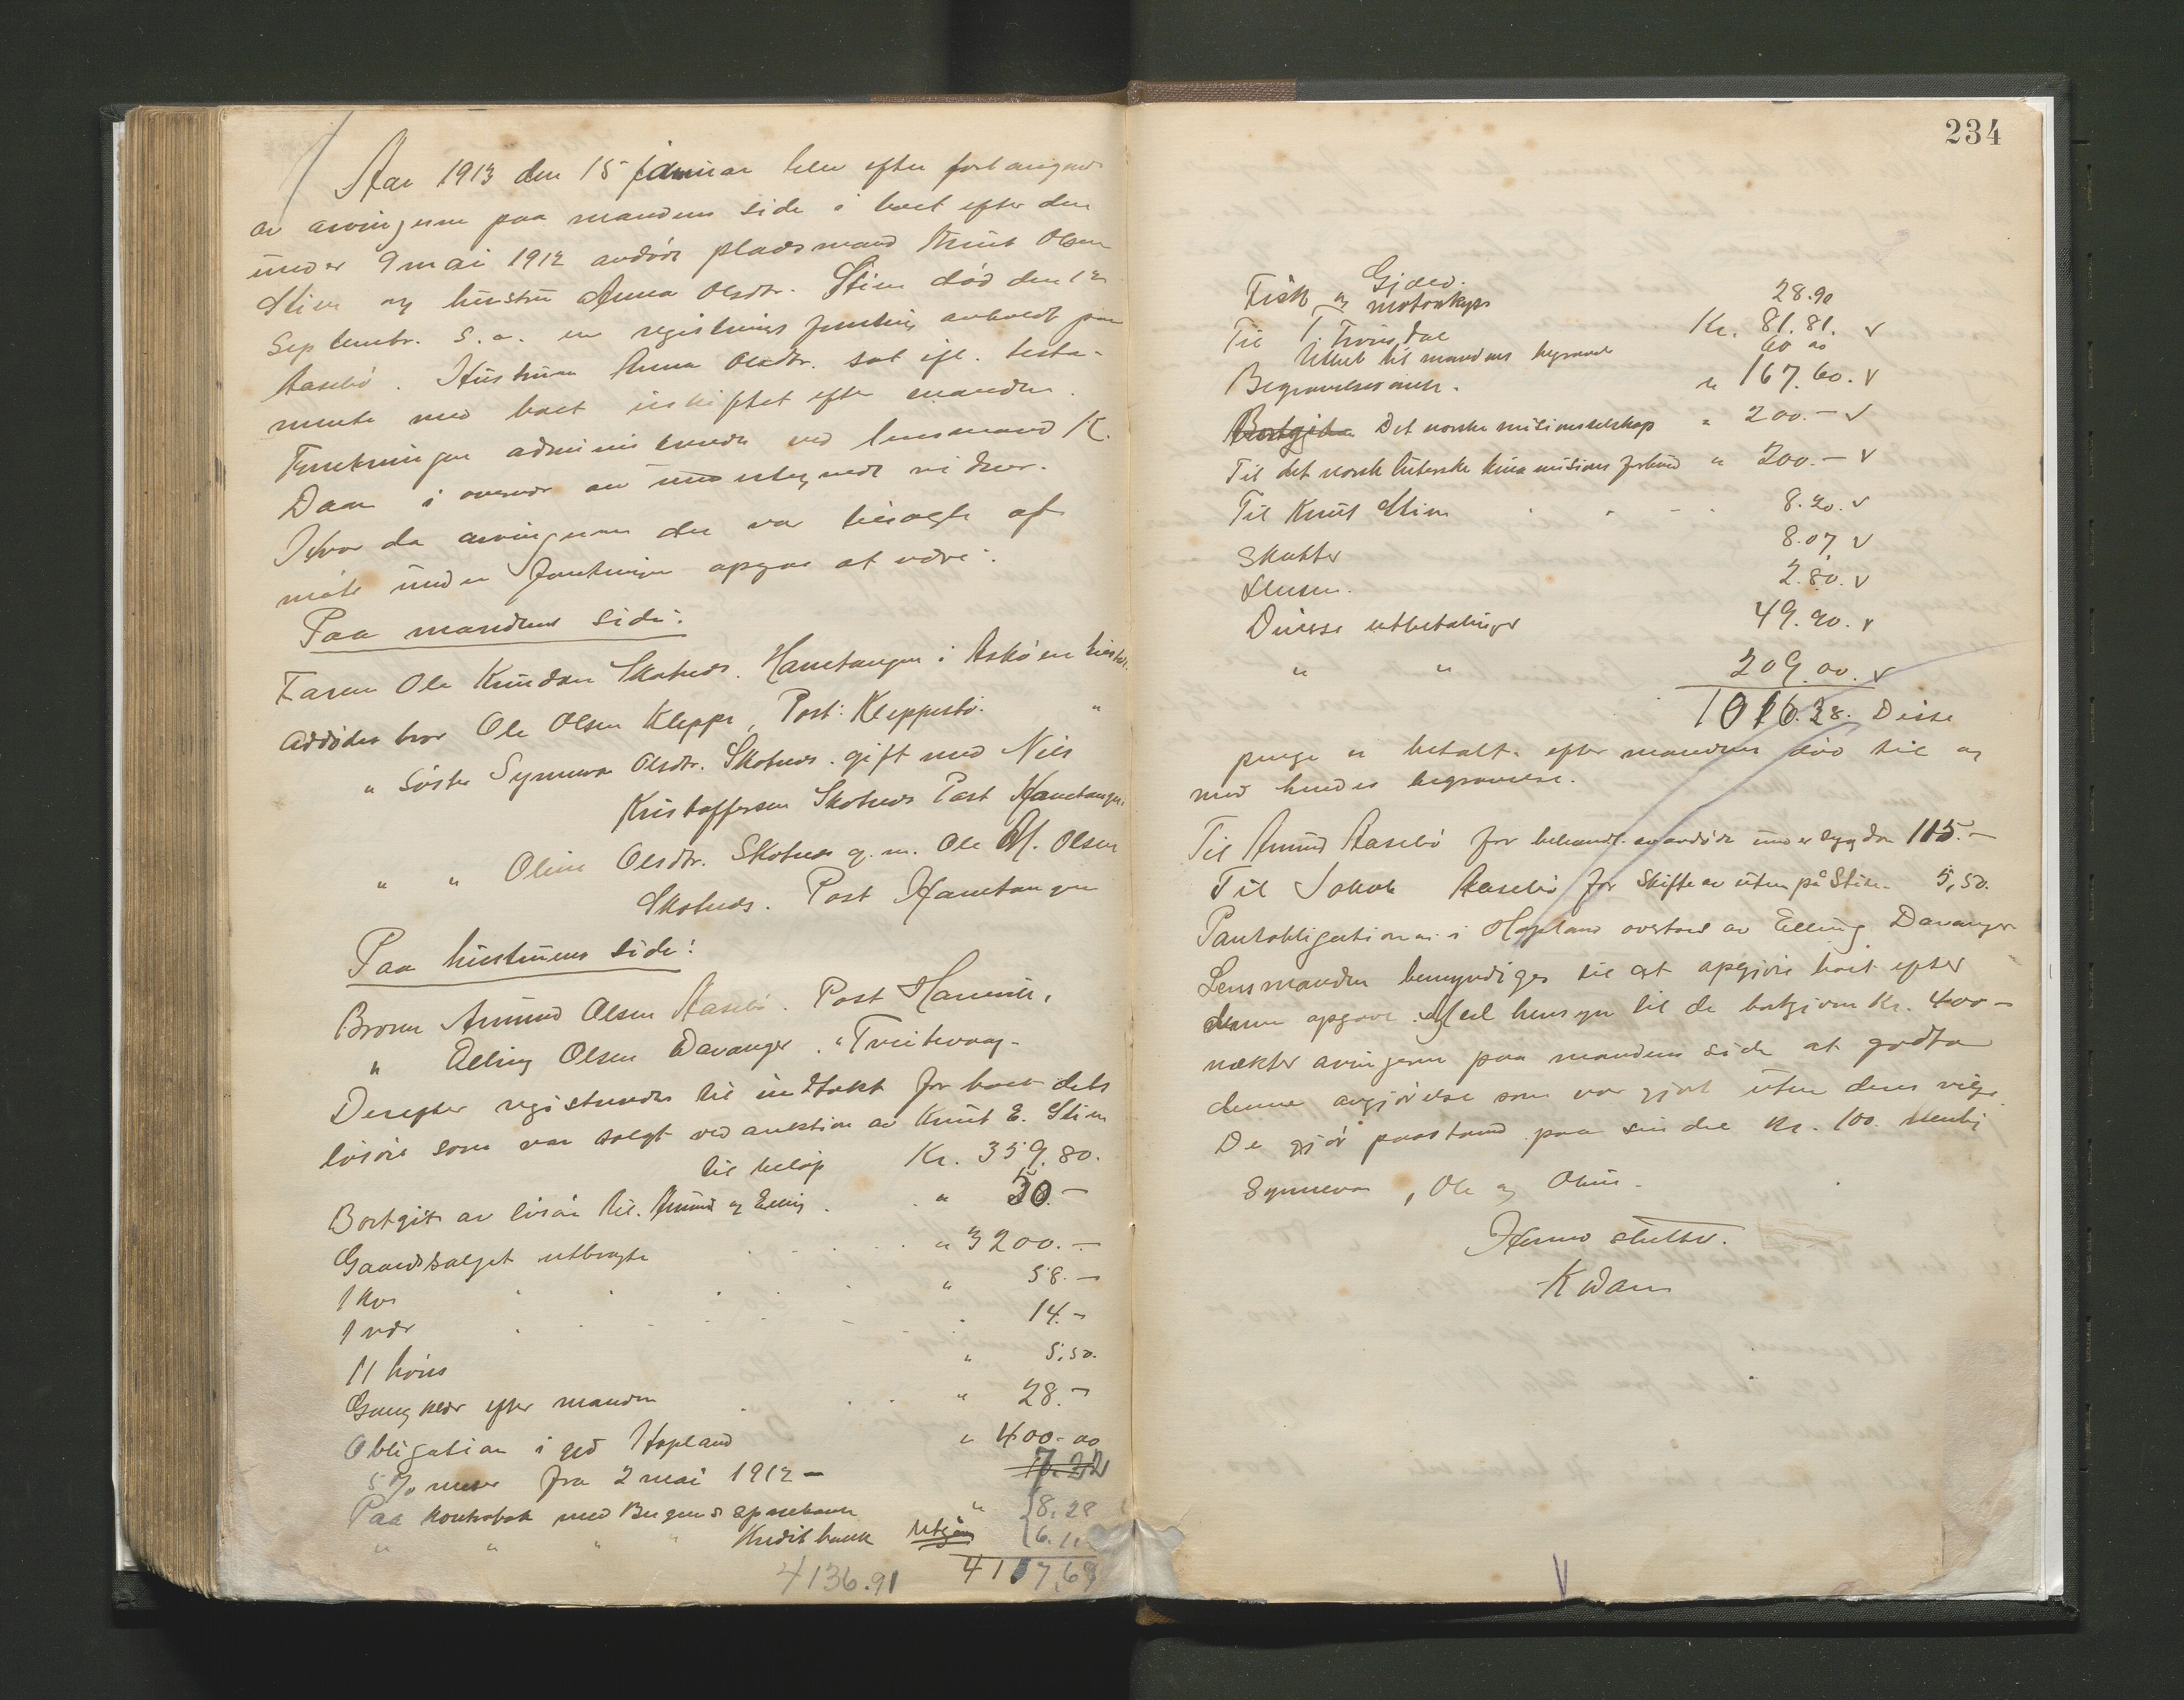 Aar 1913 den 15 januar blev efter forlangende
av arvingerne paa mandens side i boet efter den
under 9 mai 1912 avdöde pladsmand Knut Olsen
Stien og hustru Anna Olsdtr. Stien död den 12
Septembr. s.a. en registrerings forretning avholdt paa
Aasebö. Hustruen Anna Olsdtr. sat ifl. testa-
mente med boet uskiftet efter manden.
Forretningen administrertes ved lensmand K.
Dam i overvær av undertegnede vidner.
Hvor da arvingerne der var tilsagte at
möte under forretningen opgaves at være:
Paa mandens side:
Faren Ole Knudsen Skotnes. Hanetangen i Asköen
Avdödes bror Ole Olsen Kleppe, Post: Kleppestö. "
" söster Synneva Olsdtr. Skotnes. gift med Nils
Kristoffersen Skotnes Post Hanetangen
" " Oline Olsdtr. Skotnes g.m. Ole M. Olsen
Skotnes. Post Hanetangen
Paa hustruens side:
Broren Amund Olsen Aasebö. Post Hammer,
" Elling Olsen Davanger. " Tveitevaag-
Derefter registrertes til indtækt for boet dets
lösöre som var solgt ved auktion av Knut E. Stien
til beløp Kr. 359.80.
Bortgit av lösöre til. Amund og Elling . . " 50.-
Gaardssalget utbragte " 3200.-
1 ko " 58.-
1 vær 14.-
11 höns " 5,50.
Gangklær efter manden " 28.-
Obligation i gd Hopland " 400-00
5% renter fra 2 mai 1912 - 7.22
Paa kontrabok med Bergens sparebank " 8,28
" " " " Kreditbank 6.11
4136.91 4117,69
234
Gjæld.
Fisk og motorskyss 28.90
Til T. Kr. 81.81. v
Utlæg til mandens begravelse 60 00
Begravelsesomk. " 167.60. v
Bortgitt Det norske misionsselskap " 200.- v
Til det norsk luterske kina misions forbund " 200.- v
Til Knut Stien 8.20. v
Skatter 8.07 v
2.80. v
Diverse utbetalinger 49.90. v
" " 209.00. v
1016.28. Disse
penge er betalt efter mandens död til og
med hendes begravelse.
Til Amund Aasebö for behandl. av avdöde under sygdom 115.-
Til Jakob Aasebö for skifte av uten på Stien 5,50.
Pantobligationen i Hopland overtas av Elling Davanger
Lensmanden bemyndiges til at opgjöre boet efter
denne opgave. Med hensyn til de bortgivne Kr. 400-
nekter arvingerne paa mandens side at godta
denne avgjörelse som var gjort uten deres vilje.
De gjör paastand paa sin del Kr. 100. nemlig
Synneva, Ole og Oline.
Hermed sluttet.
K Dam